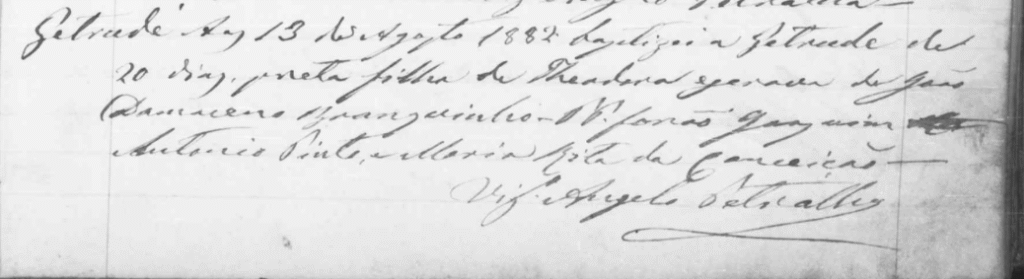 Getrude Aos 13 de Agosto 1882 baptizei a Getrude de
20 dias, preta filha de Theodora escrava de João
Damaceno Branquinho - PP. forão Joaquim
Antonio Pinto, e Maria Rita da Conceição —
Vigº Angelo